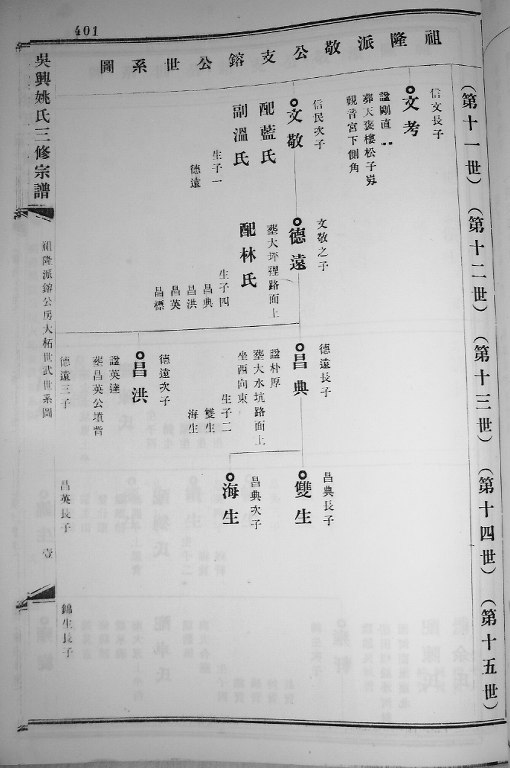 401
祖隆派敬公支鎔公世系圖
吳興姚氏三修宗譜
祖隆派鎔公房大柘世武世系圖
壹
(第十一世)
(第十二世)
(第十三世)
(第十四世)
(第十五世)
信文長子
文考
諡剛直
葬天裘樓松子岃
觀音宮下側角
信民次子
文敬
配藍氏
副溫氏
生子一
德遠
文敬之子
德遠
葬大坪裡路面上
配林氏
生子四
昌典
昌洪
昌英
昌標
德遠長子
昌典
諡朴厚
葬大水坑路面上
坐西向東
生子二
雙生
海生
德遠次子
昌洪
諡英達
葬昌英公墳背
德遠三子
昌典長子
雙生
昌典次子
海生
昌英長子
錦生長子